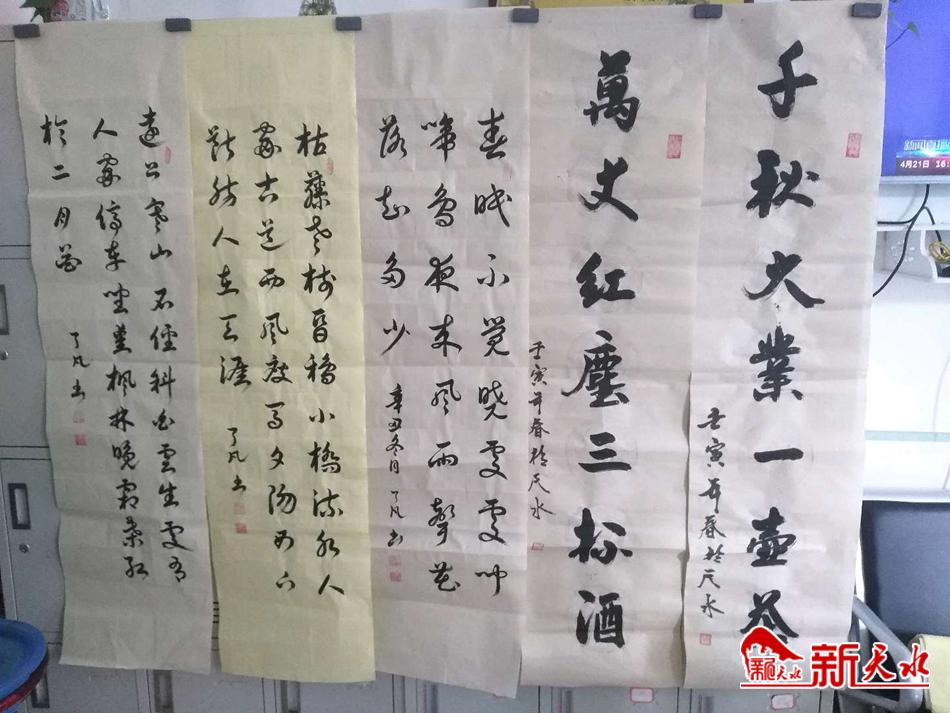 千秋大業一壺茶
壬寅年春於天水
萬丈紅塵三杯酒
壬寅年春於天水
春眠不覺曉處處聞
啼鳥夜來風雨聲花
落知多少
辛丑冬月 了凡书
枯藤老樹昏鴉小橋流水人
家古道西風瘦馬夕陽西下
斷腸人在天涯
了凡书
遠上寒山石徑斜白雲生處有
人家停车坐愛楓林晚霜葉紅
於二月花
了凡书
4月21日 16:
新天水